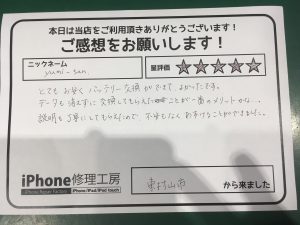 本日は当店をご利用頂きありがとうございます!
ご感想をお願いします!
ニックネーム
yumi-san
星評価 ★★★★★
とても お安く バッテリー交換ができて よかったです。
データも消えずに 交換してもらえたことが一番のメリットかな…。
説明も丁寧にしてもらえたので、不安もなくお手けすることができました。
iPhone修理工房
iPhone Repair Factory
iPhone/iPad/iPod touch
東村山市
から来ました